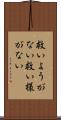 救いようが
ない救い様
がない